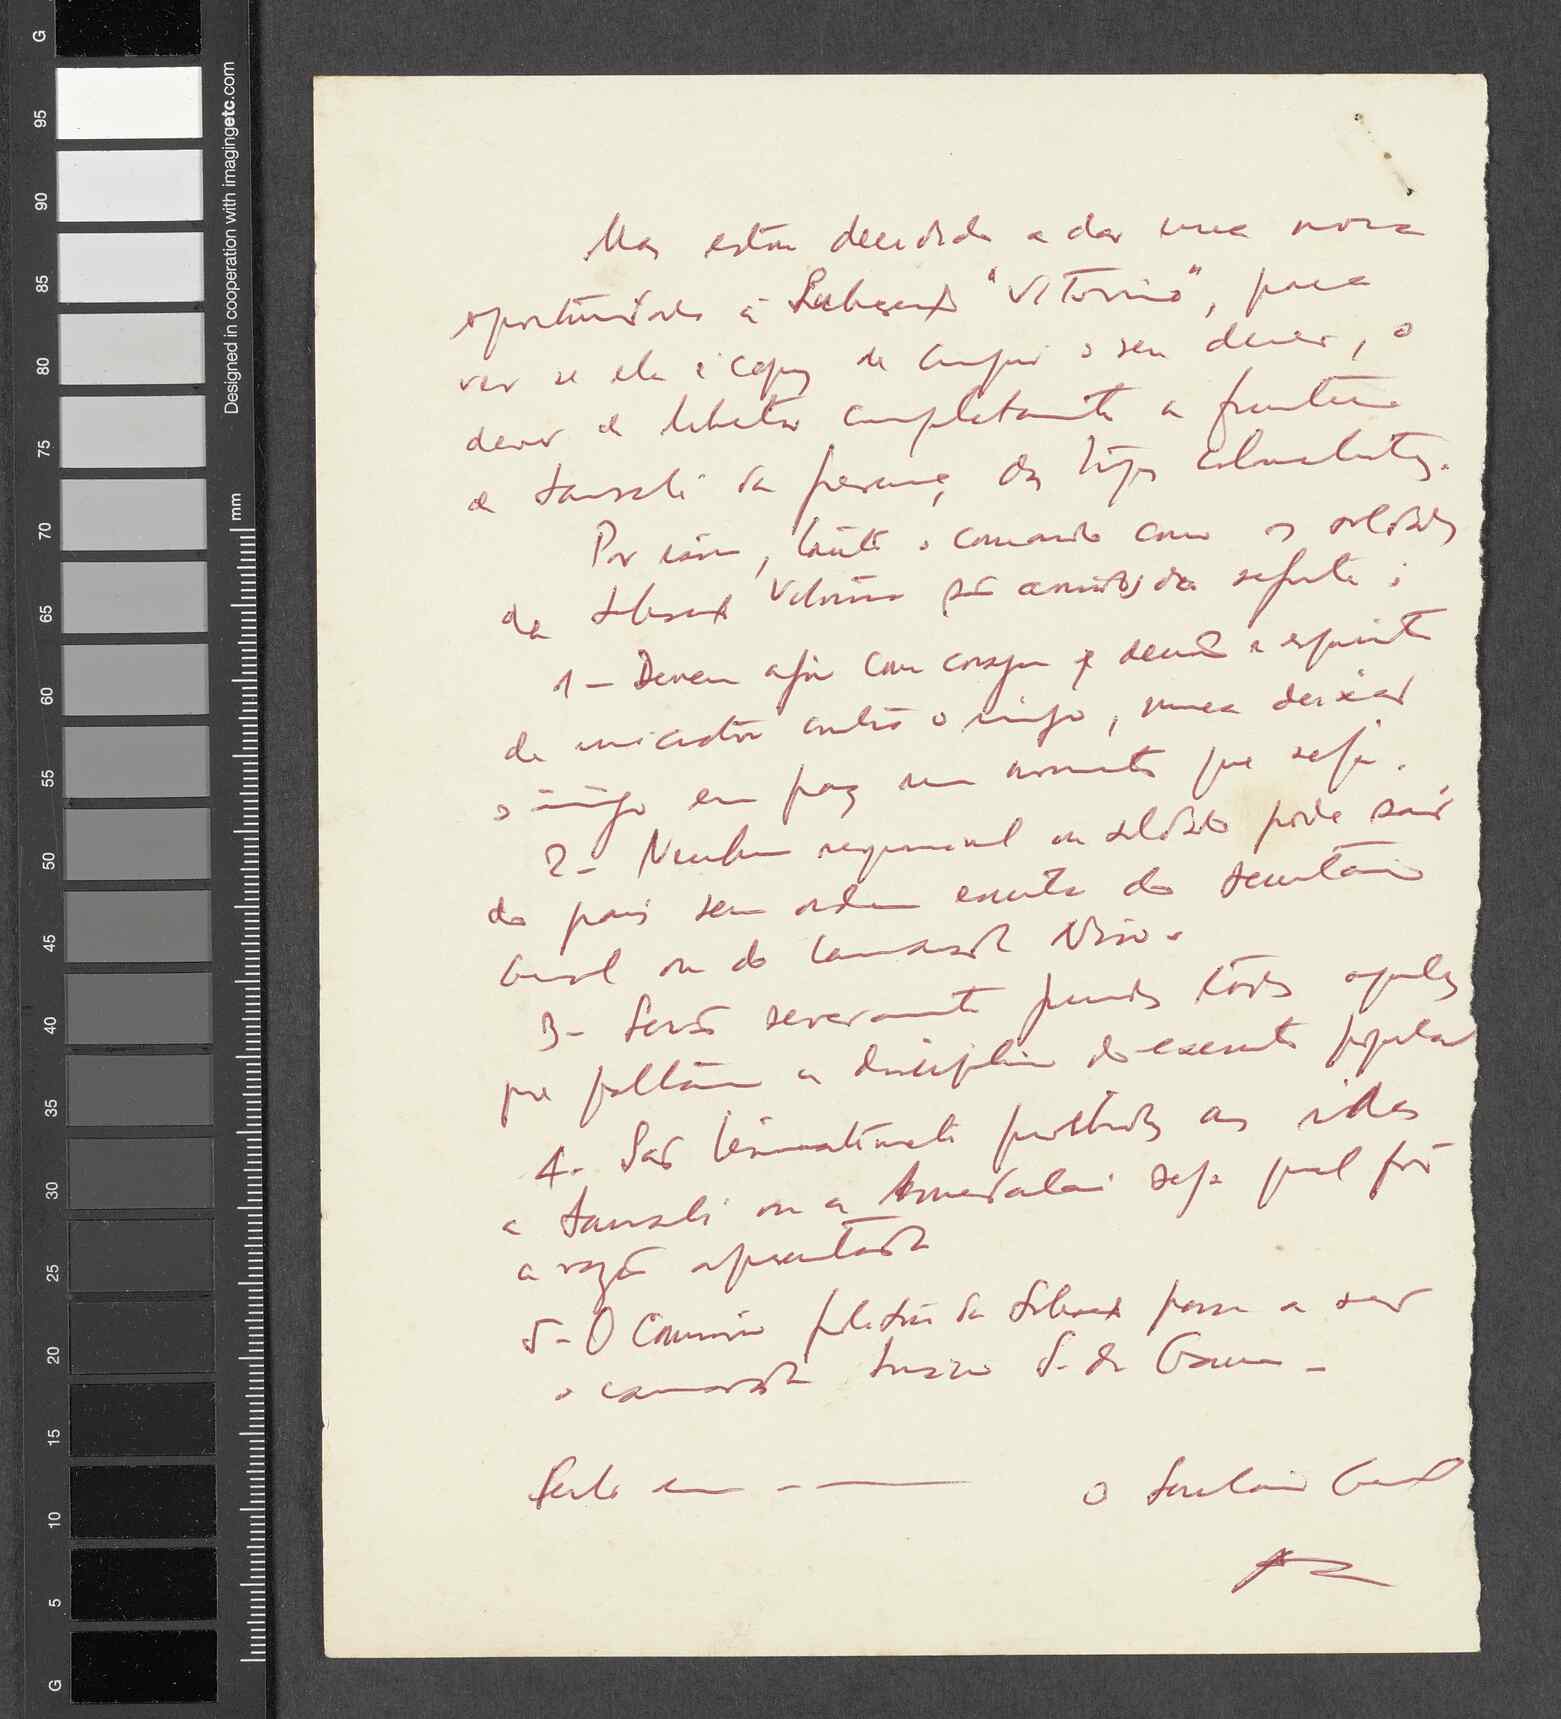 G
95
90
85
80
75
70
65
60
55
50
45
40
35
30
25
20
15
10
5
G
Designed in cooperation with imagingetc.com
mm
Mas estou decidido a dar uma nova
oportunidade à "Vitorino", para
ver se ela é capaz de cumprir o seu dever, o
dever de libertar completamente a fronteira
de Sansalé da presença dos tugas colonialistas.
Por isso, tanto o comando como os soldados
da Vitorino são do seguinte:
1 - Devem agir com coragem, decisão e espírito
de iniciativa contra o inimigo, nunca deixar
o inimigo em paz um momento que seja.
2 - Nenhum responsável ou soldado pode sair
do país sem ordem escrita do Secretário
Geral ou do camarada Nino.
3 - Serão severamente punidos todos aqueles
que faltarem à disciplina do exército popular
4 - São terminantemente proibidas as idas
a Sansalé ou a seja qual fôr
a razão apresentada
5 - O Comissário político da passa a ser
o camarada S. da Gama -
Feito em - ———
O Secretário Geral